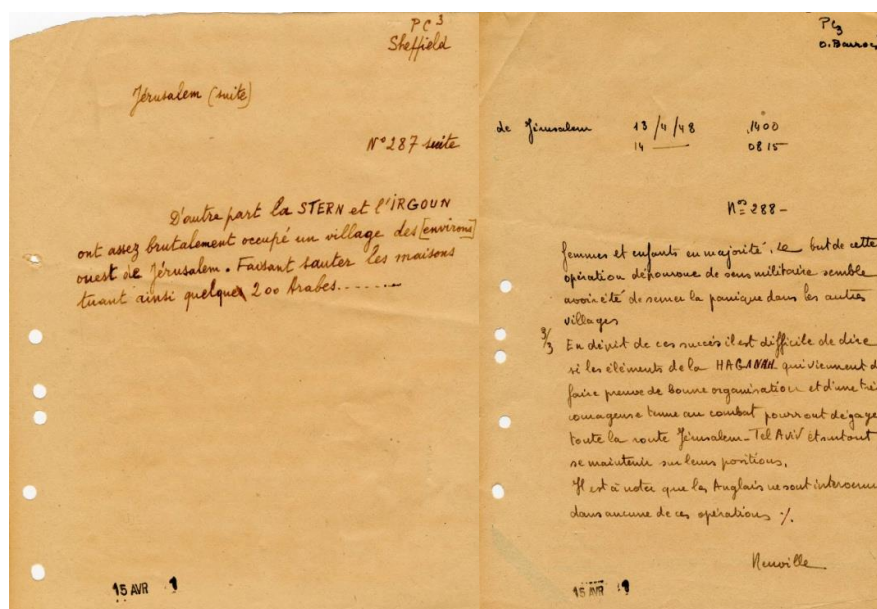 PC 3
Sheffield
Jérusalem (suite)
N° 287 suite
D'autre part la STERN et l'IRGOUN
ont assez brutalement occupé un village des [environs]
ouest de Jérusalem. Faisant sauter les maisons
tuant ainsi quelques 200 Arabes........
15 AVR
PC3
de Jérusalem 13/4/48 1400
14 0815
Nos 288-
femmes et enfants en majorité. Le but de cette
opération dépourvue de sens militaire semble
avoir été de semer la panique dans les autres
villages
3/3 En dépit de ces succès il est difficile de dire
si les éléments de la HAGANAH qui viennent d
faire preuve de bonne organisation et d'une trè
courageuse tenue au combat pourront dégage
toute la route Jérusalem-Tel Aviv et surtout
se maintenir sur leurs positions.
Il est à noter que les Anglais ne sont intervenu
dans aucune de ces opérations ./.
Neuville
15 AVR